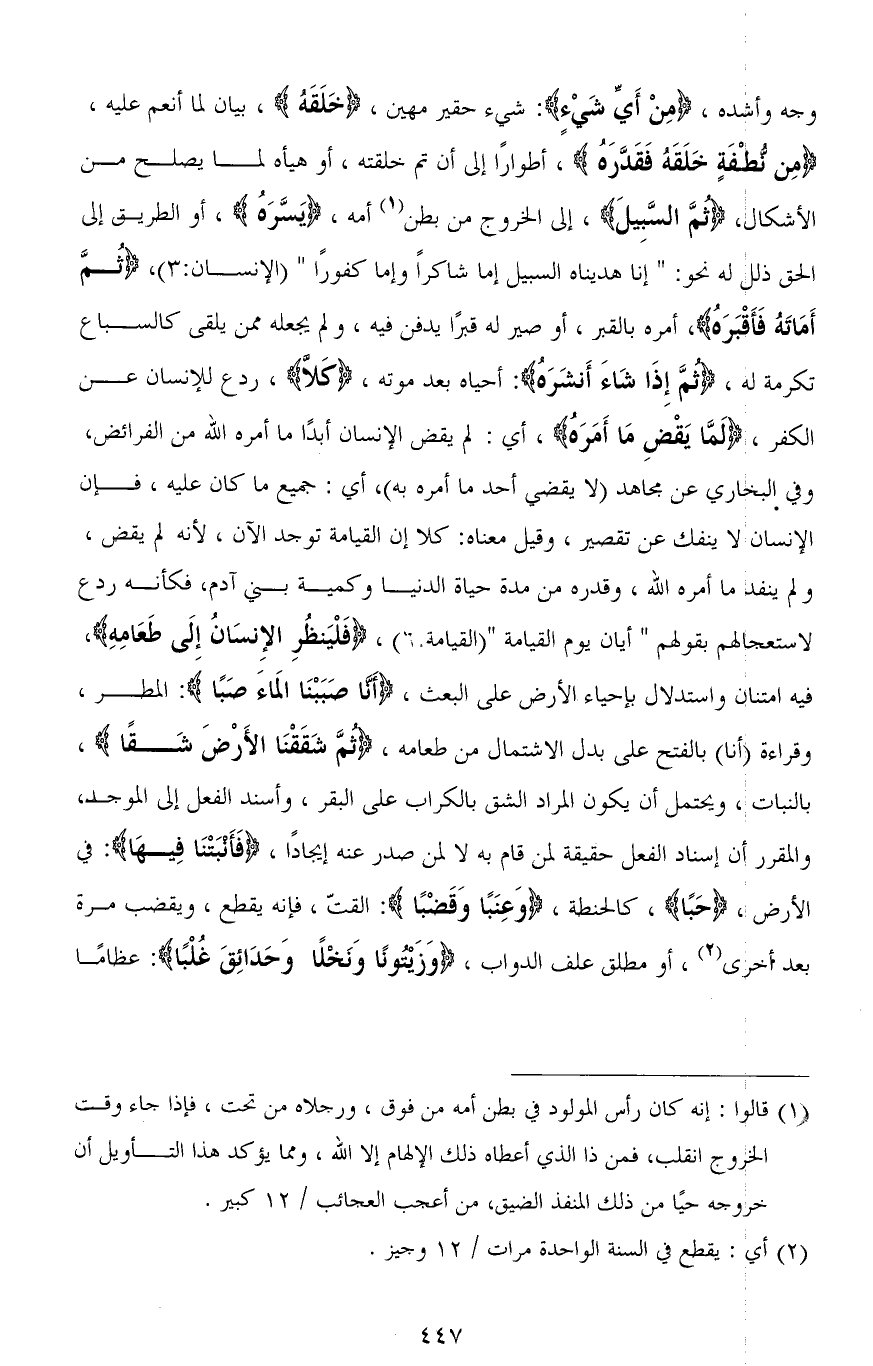 وجه وأشده ، ﴿مِنْ أَيِّ شَيْءٍ﴾: شيء حقير مهين ، ﴿خَلَقَهُ ﴾ ، بيان لما أنعم عليه ،
﴿مِن نُّطْفَةٍ خَلَقَهُ فَقَدَّرَهُ ﴾ ، أطوارًا إلى أن تم خلقته ، أو هيأه لمـــا يصلـــح مـــن
الأشكال، ﴿ثُمَّ السَّبِيلَ﴾ ، إلى الخروج من بطن(١) أمه ، ﴿يَسَّرَهُ ﴾ ، أو الطريــق إلى
الحق ذلل له نحو: " إنا هديناه السبيل إما شاكراً وإما كفورًا " (الإنســـان:٣)، ﴿ثُـــمَّ
أَمَاتَهُ فَأَقْبَرَهُ﴾، أمره بالقبر ، أو صير له قبرًا يدفن فيه ، ولم يجعله ممن يلقى كالســـباع
تكرمة له ، ﴿ثُمَّ إِذَا شَاءَ أَنشَرَهُ﴾: أحياه بعد موته ، ﴿كَلاَّ﴾ ، ردع للإنسان عـــن
الكفر ، ﴿لَمَّا يَقْضِ مَا أَمَرَهُ﴾ ، أي : لم يقض الإنسان أبدًا ما أمره الله من الفرائض،
وفي البخاري عن مجاهد (لا يقضي أحد ما أمره به)، أي : جميع ما كان عليه ، فـــإن
الإنسان لا ينفك عن تقصير ، وقيل معناه: كلا إن القيامة توجد الآن ، لأنه لم يقض ،
ولم ينفد ما أمره الله ، وقدره من مدة حياة الدنيـــا وكميـــة بـــني آدم، فكأنـــه ردع
لاستعجالهم بقولهم " أيان يوم القيامة "(القيامة.٦) ، ﴿فَلْيَنظُرِ الإِنسَانُ إِلَى طَعَامِهِ﴾،
فيه امتنان واستدلال بإحياء الأرض على البعث ، ﴿أَنَّا صَبَبْنَا الْمَاءَ صَبًا ﴾: المطـــر ،
وقراءة (أنا) بالفتح على بدل الاشتمال من طعامه ، ﴿ثُمَّ شَقَقْنَا الأَرْضَ شَـــقًا ﴾ ،
بالنبات ، ويحتمل أن يكون المراد الشق بالكراب على البقر ، وأسند الفعل إلى الموجـد،
والمقرر أن إسناد الفعل حقيقة لمن قام به لا لمن صدر عنه إيجادًا ، ﴿فَأَنْبَتْنَا فِيـــهَا﴾: في
الأرض ، ﴿حَبًا﴾ ، كالحنطة ، ﴿وَعِنَبًا وَقَضْبًا ﴾: القتّ ، فإنه يقطع ، ويقضب مـرة
بعد أخرى(٢) ، أو مطلق علف الدواب ، ﴿وَزَيْتُونًا وَنَخْلًا وَحَدَائِقَ غُلْبًا﴾: عظامًـا
(١) قالوا : إنه كان رأس المولود في بطن أمه من فوق ، ورجلاه من تحت ، فإذا جاء وقـت
الخروج انقلب، فمن ذا الذي أعطاه ذلك الإلهام إلا الله ، ومما يؤكد هذا التـــأويل أن
خروجه حيًا من ذلك المنفذ الضيق، من أعجب العجائب / ١٢ كبير .
(٢) أي : يقطع في السنة الواحدة مرات / ١٢ وجيز .
٤٤٧